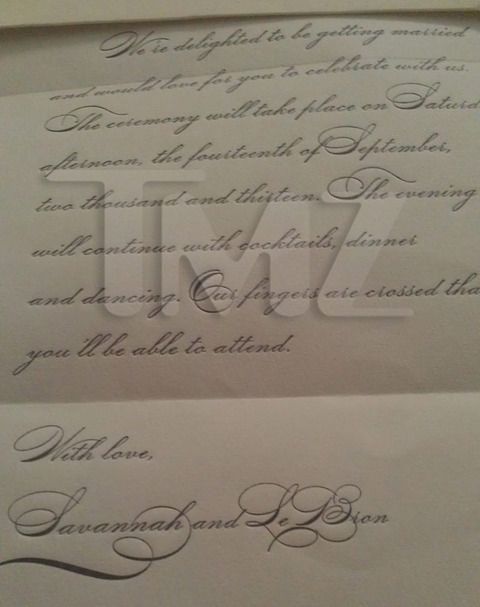 We're delighted to be getting married
and would love for you to celebrate with us.
The ceremony will take place on Saturd
afternoon, the fourteenth of September,
two thousand and thirteen. The evening
will continue with cocktails, dinner
and dancing. Our fingers are crossed tha
you'll be able to attend.
With love,
Savannah and LeBron
TMZ